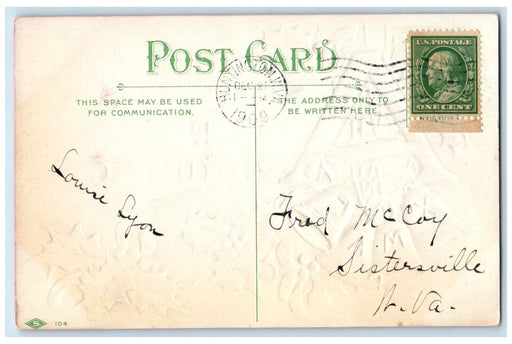 POST CARD
THIS SPACE MAY BE USED
FOR COMMUNICATION.
THE ADDRESS ONLY TO
BE WRITTEN HERE.
1909
U.S. POSTAGE
ONE CENT
Louise Lyon
Fred McCoy
Sistersville
W. Va.
S 104